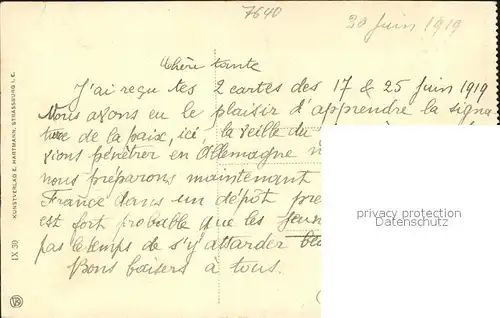 7640
30 Juin 1919
Chère tante
J'ai reçu tes 2 cartes des 17 & 25 Juin 1919
Nous avons eu le plaisir d'apprendre la signa
ture de la paix, ici, la veille du
vions pénétrer en Allemagne
nous préparons maintenant
France dans un dépôt
est fort probable que les
pas le temps de s'y attarder
Bons baisers à tous.
privacy protection
Datenschutz
KUNSTVERLAG E. HARTMANN, STRASSBURG I. E.
IX 30